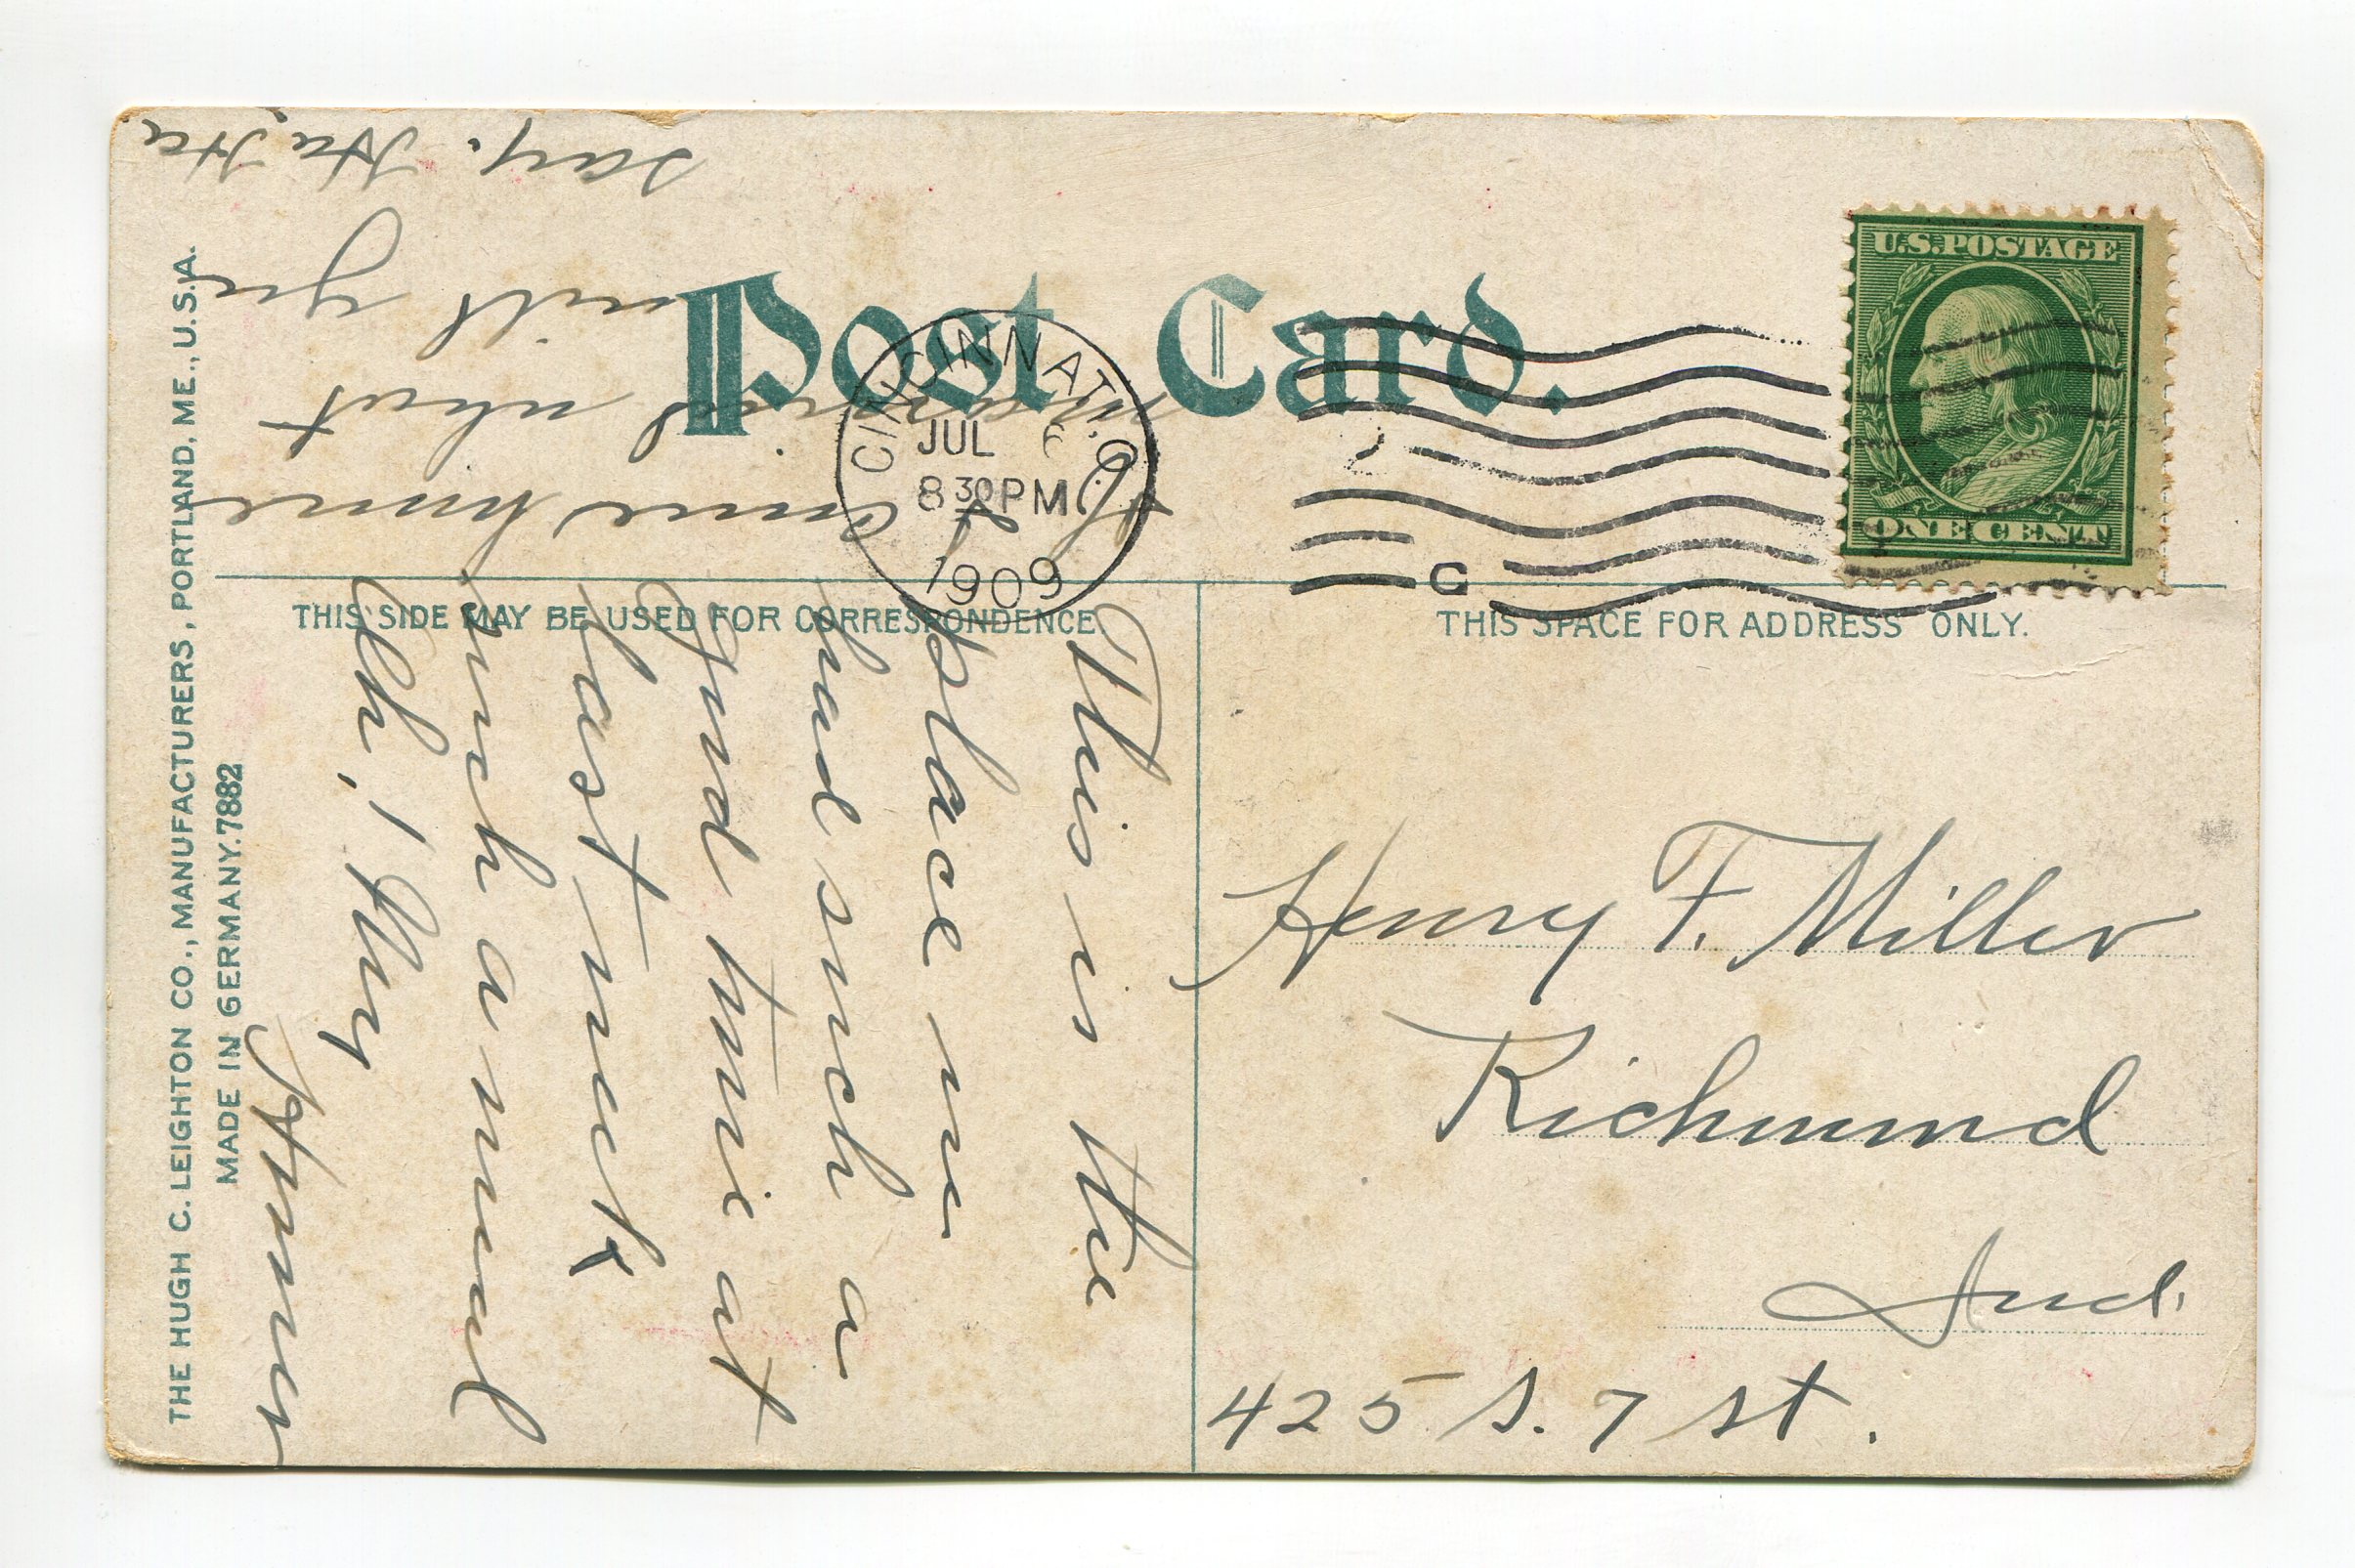 Post Card.
CINCINNATI, O.
JUL 6
8 30 PM
1909
C
U.S. POSTAGE
ONE CENT
THIS SIDE MAY BE USED FOR CORRESPONDENCE.
THIS SPACE FOR ADDRESS ONLY.
THE HUGH C. LEIGHTON CO., MANUFACTURERS, PORTLAND, ME., U.S.A.
MADE IN GERMANY. 7882
This is the
place we
had such a
good time at
last week
such a
Oh, ! My
If I come home
married what
will you
say. Ha, Ha
Henry F. Miller
Richmond
Ind.
425 S. 7 st.